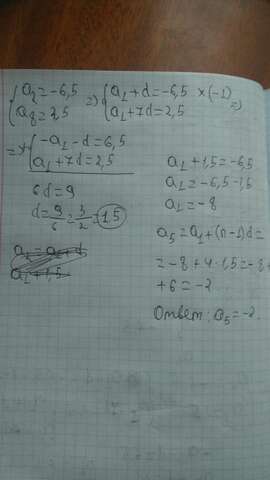 { a₂ = -6,5 => { a₁ + d = -6,5 ×(-1) =>
{ a₈ = 2,5 { a₁ + 7d = 2,5
=> + { -a₁ - d = 6,5
{ a₁ + 7d = 2,5
6d = 9
d = 9/6 = 3/2 = 1,5
a₁ + 1,5 = -6,5
a₁ = -6,5 - 1,5
a₁ = -8
a₅ = a₁ + (n-1)d =
= -8 + 4 · 1,5 = -8 +
+ 6 = -2
Ответ: a₅ = -2.